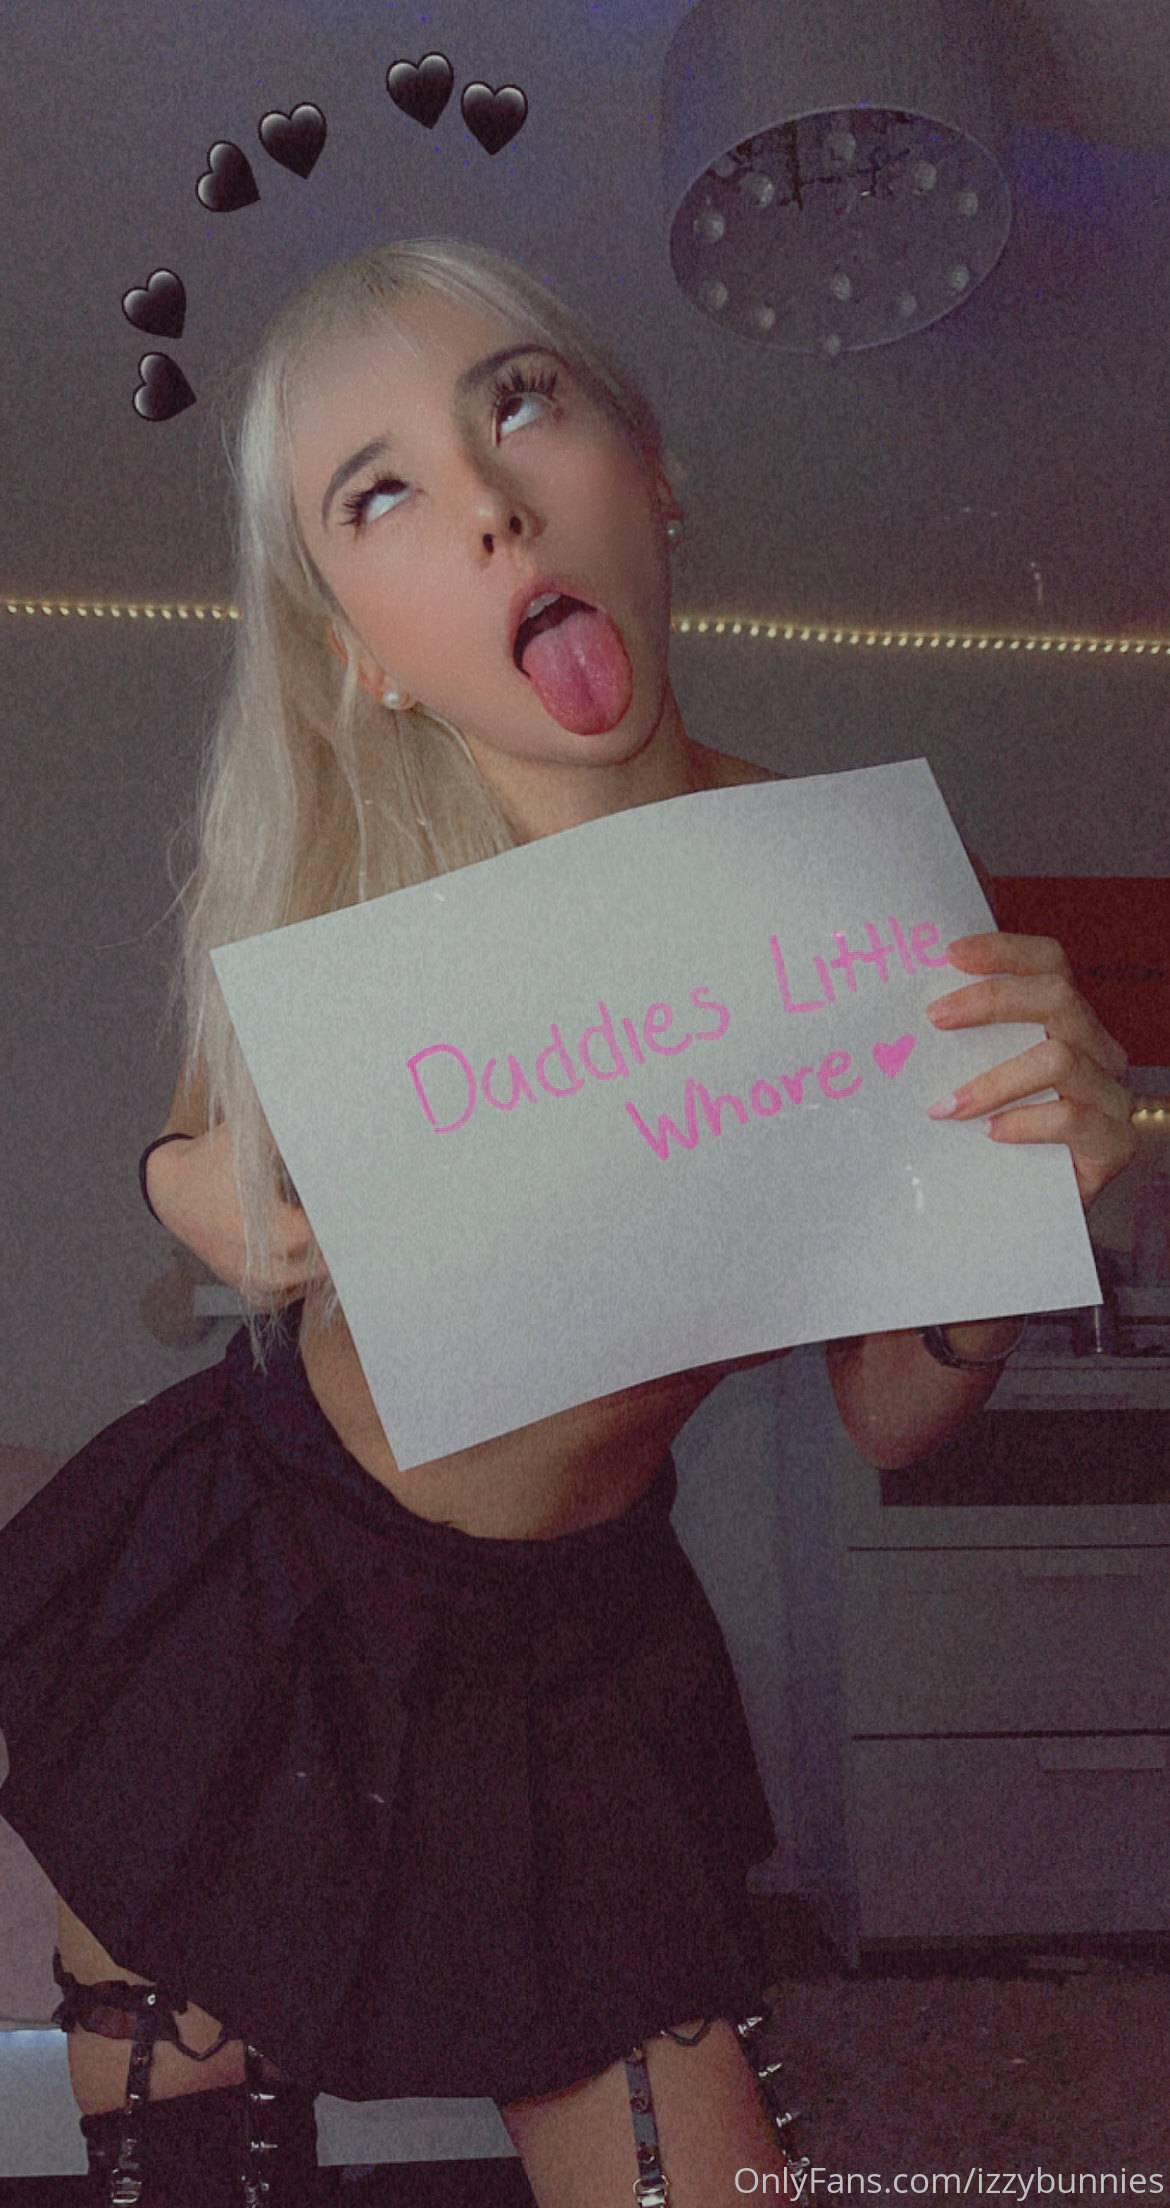 Daddies Little
Whore♥
OnlyFans.com/izzybunnies